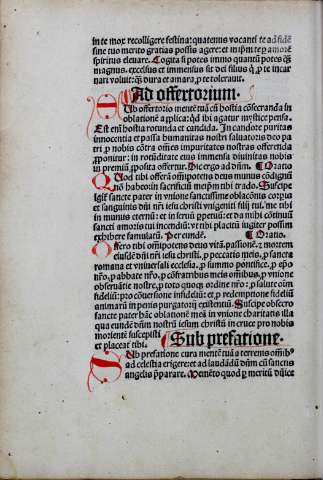 in te mox recolligere festina: quatenus vocanti te ad fidē
sine tuo merito gratias possis agere: et in ip̄m te p amorē
spiritus eleuare. Cogita si potes immo quantū potes q̄
magnus. excelsus et immensus sit dei filius q̄ p te incar
nari voluit: q̄ dura et amara p te tolerauit.
Ad offertorium.
Ub offertorio mentē tuā cū hostia cōsecranda in
oblatione applica: qd ibi agatur mystice pensa.
Est em̄ hostia rotunda et candida. In candore puritas
innocentia et passa humanitas nostri saluatoris deo pa
tri p nobis cōtra oēs impuritates nostras offerenda
p̄ponitur: in rotūditate eius immensa diuinitas nobis
in premiū p̄posita offertur. Dic ergo ad dn̄m. Oratio
Quod tibi offerā oīpotens deus munus cōdignū
nō habeo: in sacrificiū meip̄m tibi trado. Suscipe
igit̄ sancte pater in vnione sanctissime oblatiōnis corpus
et sanguinis dn̄i nr̄i iesu christi vnigeniti filij tui. me tibi
in munus eternū: et in seruū ppetuū: et da mihi cōtinuū
sancti amoris tui incendiū: vt tibi placitū iugiter possim
exhibere famulatū. Per eundē. Oratio.
Offero tibi oīpotens deus vitā. passionē. et mortem
eiusdē dn̄i nr̄i iesu christi. p peccatis meis. p sancta
romana et vniuersali ecclesia. p summo pontifice. p ep̄o
nr̄o. p abbate nr̄o. p cōfratribus meis oībus. p vnione
obseruātie nostre. p toto quoqz ordine nr̄o: p salute oīm
fidelium: pro cōuersione īfideliū: et p redemptione fideliū
animarū in penis purgatorij existentiū. Suscipe obsecro
sancte pater hāc oblationē meā in vnione charitatis illa
qua eundē dn̄m nostrū iesum christū in cruce pro nobis
morientē suscepisti
et placeat tibi. Sub prefatione.
Ub prefatione cura mentē tuā a terrenis oīnibꝰ
ad celestia erigere: et ad laudādū dn̄m cū sanctis
angelis p̄parare. Memēto quod p meritū dn̄ice